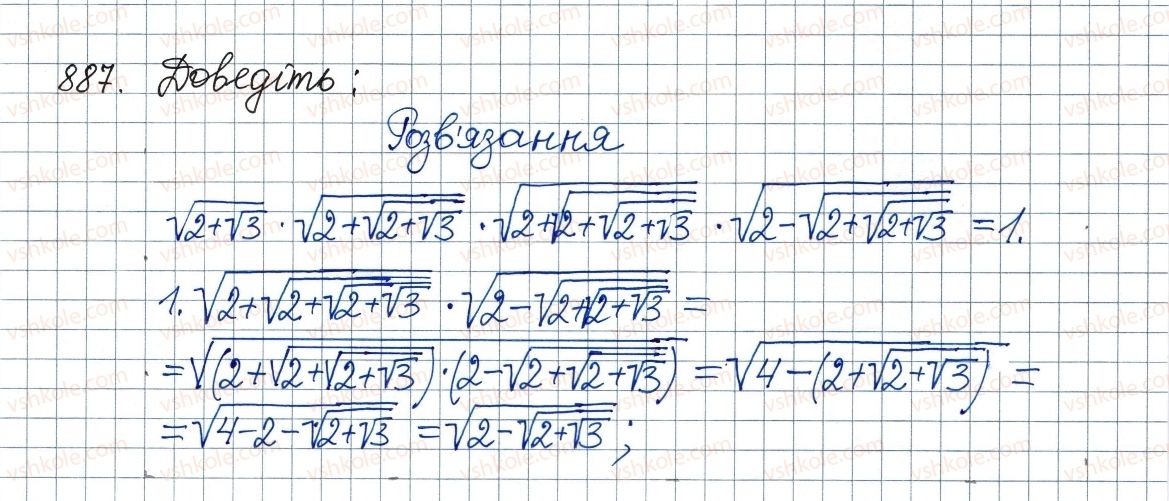 887. Доведіть:
Розв'язання
√(2+√3) · √(2+√(2+√3)) · √(2+√(2+√(2+√3))) · √(2-√(2+√(2+√3))) = 1.
1. √(2+√(2+√(2+√3))) · √(2-√(2+√(2+√3))) =
= √((2+√(2+√(2+√3)))·(2-√(2+√(2+√3)))) = √(4-(2+√(2+√3))) =
= √(4-2-√(2+√3)) = √(2-√(2+√3));